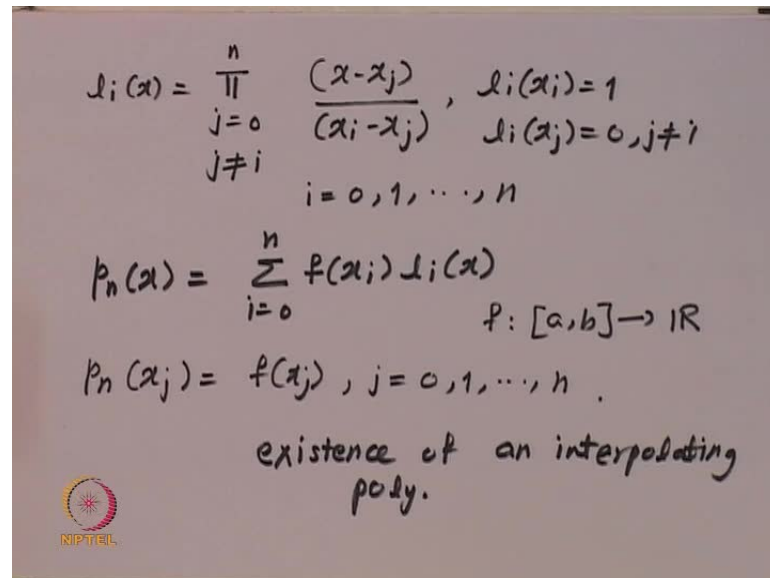 n
li(x) = Π (x-xj)/(xi-xj), li(xi)=1
j=0 li(xj)=0, j≠i
j≠i
i=0,1,⋯,n
n
pn(x) = Σ f(xi) li(x)
i=0
f: [a,b]→ℝ
pn(xj) = f(xj), j=0,1,⋯,n.
existence of an interpolating
poly.
NPTEL